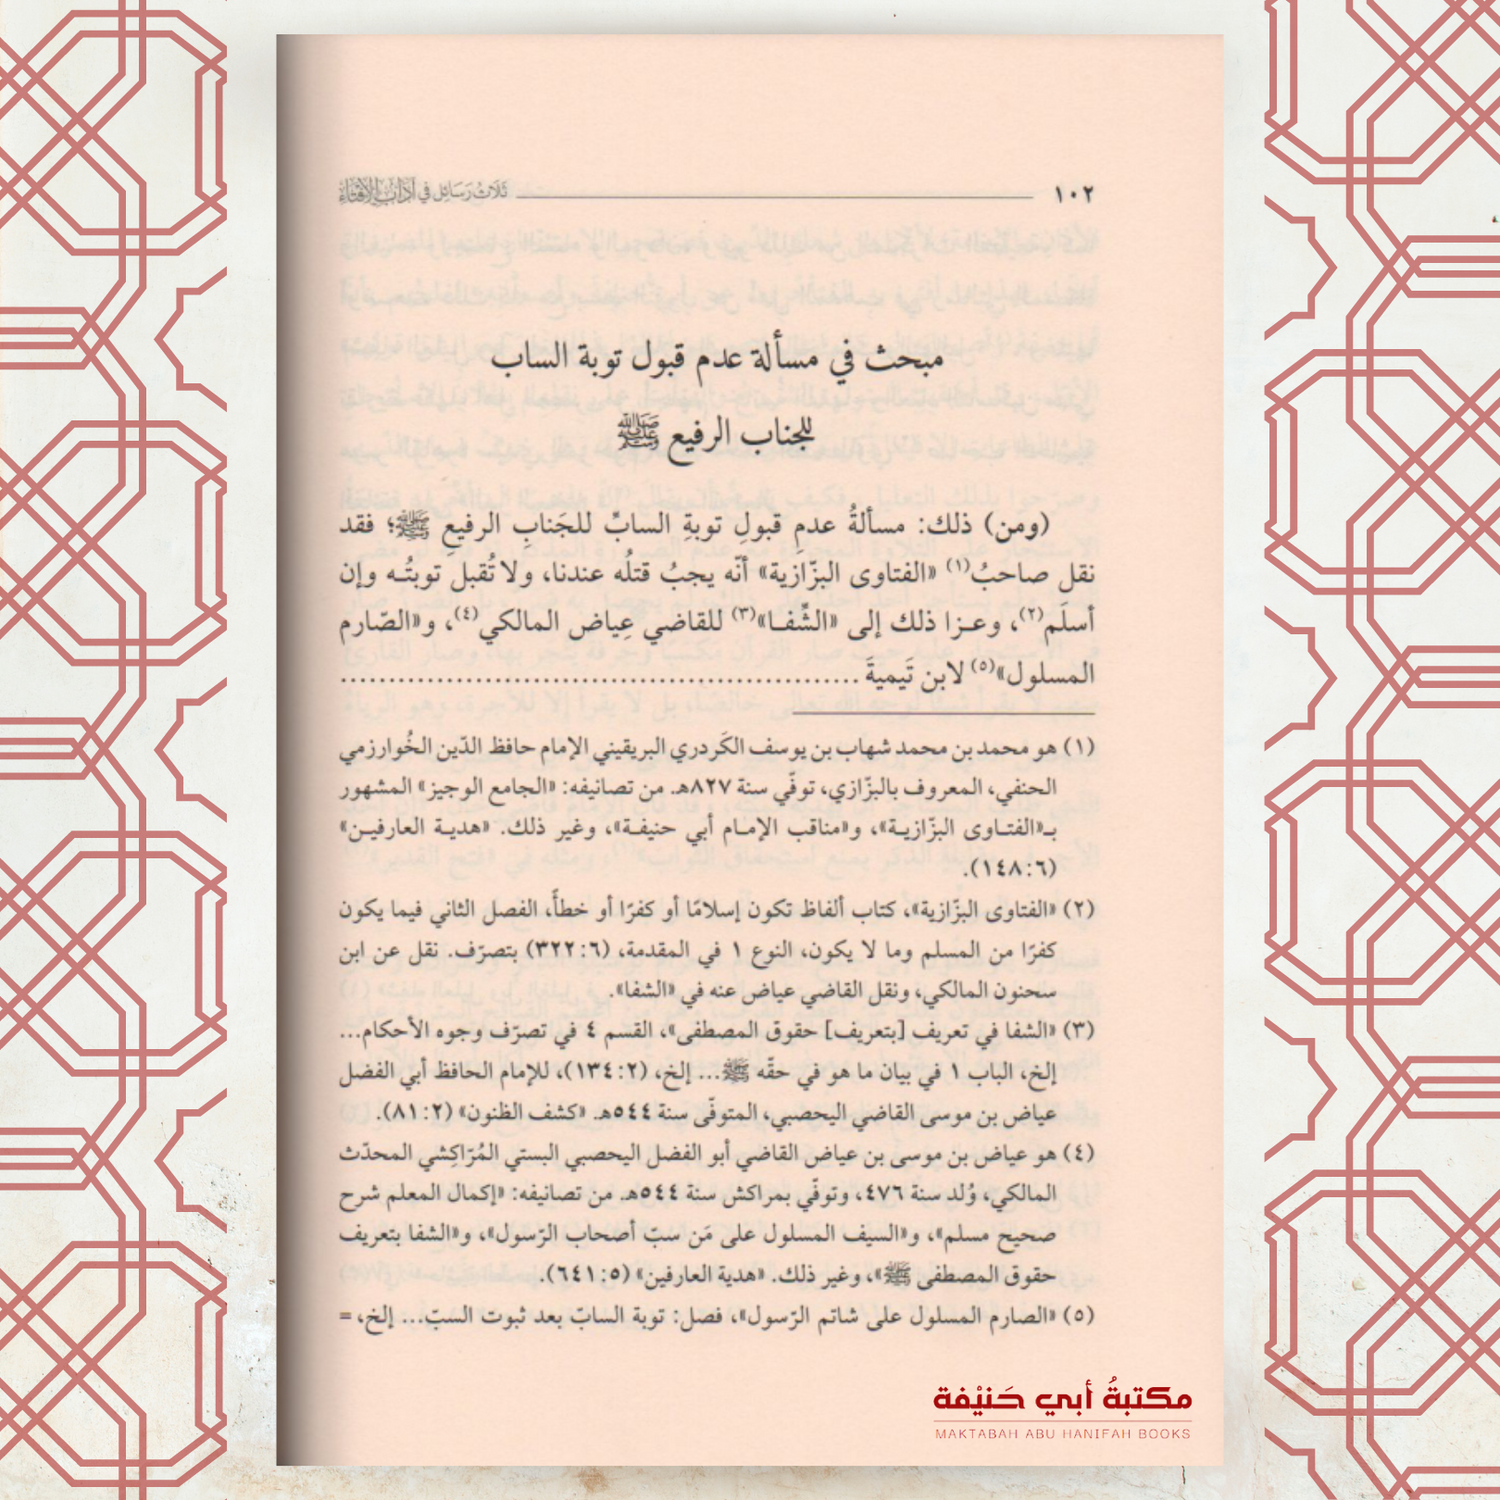 ١٠٢ ثَلَاثُ رَسَائِل في آدَابِ الإِفْتَاءِ
مبحث في مسألة عدم قبول توبة الساب
للجناب الرفيع ﷺ
(ومن) ذلك: مسألةُ عدمِ قبولِ توبةِ السابِّ للجَنابِ الرفيعِ ﷺ؛ فقد
نقل صاحبُ(١) «الفتاوى البزّازية» أنّه يجبُ قتلُه عندنا، ولا تُقبل توبتُـه وإن
أسلَم(٢)، وعـزا ذلك إلى «الشِّفـا»(٣) للقاضي عِياض المالكي(٤)، و«الصّارم
المسلول»(٥) لابن تَيميةَ ......................................................
(١) هو محمد بن محمد شهاب بن يوسف الكَردري البريقيني الإمام حافظ الدّين الخُوارزمي
الحنفي، المعروف بالبزّازي، توفّي سنة ٨٢٧هـ. من تصانيفه: «الجامع الوجيز» المشهور
بـ«الفتـاوى البزّازيـة»، و«مناقب الإمـام أبي حنيفـة»، وغير ذلك. «هديـة العارفيـن»
(٦: ١٤٨).
(٢) «الفتاوى البزّازية»، كتاب ألفاظ تكون إسلامًا أو كفرًا أو خطأً، الفصل الثاني فيما يكون
كفرًا من المسلم وما لا يكون، النوع ١ في المقدمة، (٦: ٣٢٢) بتصرّف. نقل عن ابن
سحنون المالكي، ونقل القاضي عياض عنه في «الشفا».
(٣) «الشفا في تعريف [بتعريف] حقوق المصطفى»، القسم ٤ في تصرّف وجوه الأحكام...
إلخ، الباب ١ في بيان ما هو في حقّه ﷺ... إلخ، (٢: ١٣٤)، للإمام الحافظ أبي الفضل
عياض بن موسى القاضي اليحصبي، المتوفّى سنة ٥٤٤هـ. «كشف الظنون» (٢: ٨١).
(٤) هو عياض بن موسى بن عياض القاضي أبو الفضل اليحصبي البستي المُرّاكِشي المحدّث
المالكي، وُلد سنة ٤٧٦، وتوفّي بمراكش سنة ٥٤٤هـ. من تصانيفه: «إكمال المعلم شرح
صحيح مسلم»، و«السيف المسلول على مَن سبّ أصحاب الرّسول»، و«الشفا بتعريف
حقوق المصطفى ﷺ»، وغير ذلك. «هدية العارفين» (٥: ٦٤١).
(٥) «الصارم المسلول على شاتم الرّسول»، فصل: توبة السابّ بعد ثبوت السبّ... إلخ، =
مكتبةُ أبي حَنيْفة
MAKTABAH ABU HANIFAH BOOKS